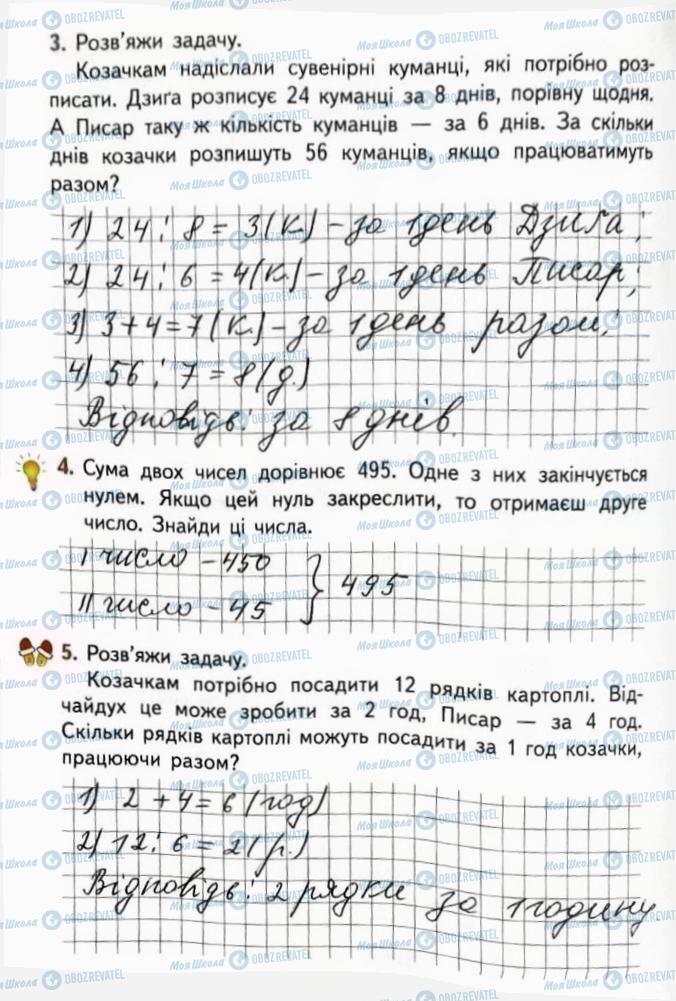 3. Розв’яжи задачу.
Козачкам надіслали сувенірні куманці, які потрібно роз-
писати. Дзиґа розписує 24 куманці за 8 днів, порівну щодня.
А Писар таку ж кількість куманців — за 6 днів. За скільки
днів козачки розпишуть 56 куманців, якщо працюватимуть
разом?
1) 24 : 8 = 3 (к.) – за 1 день Дзиґа;
2) 24 : 6 = 4 (к.) – за 1 день Писар;
3) 3 + 4 = 7 (к.) – за 1 день разом;
4) 56 : 7 = 8 (д.)
Відповідь: за 8 днів.
4. Сума двох чисел дорівнює 495. Одне з них закінчується
нулем. Якщо цей нуль закреслити, то отримаєш друге
число. Знайди ці числа.
I число – 450
II число – 45 } 495
5. Розв’яжи задачу.
Козачкам потрібно посадити 12 рядків картоплі. Від-
чайдух це може зробити за 2 год, Писар — за 4 год.
Скільки рядків картоплі можуть посадити за 1 год козачки,
працюючи разом?
1) 2 + 4 = 6 (год)
2) 12 : 6 = 2 (р.)
Відповідь: 2 рядки за 1 годину.
МояШкола OBOZREVATEL